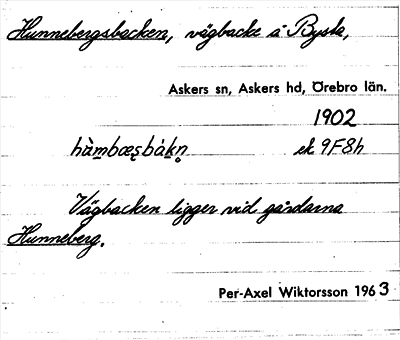 Hunnebergsbacken, vägbacke å Bysta,
Askers sn, Askers hd, Örebro län.
1902
hàmbæs̨bákn̥ ek 9F8h
Vägbacken ligger vid gårdarna
Hunneberg.
Per-Axel Wiktorsson 1963